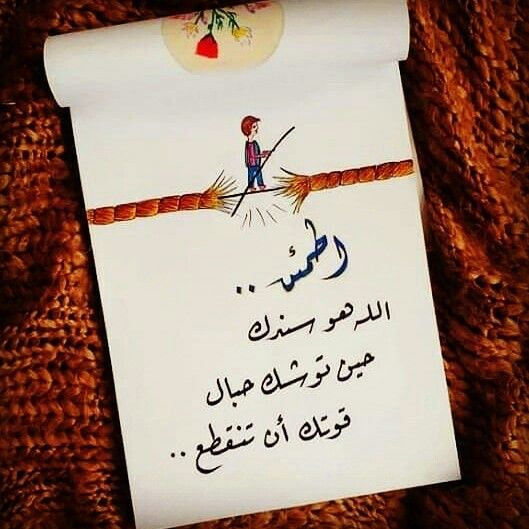 اطمئن ..
الله هو سندك
حين توشك حبال
قوتك أن تنقطع ..